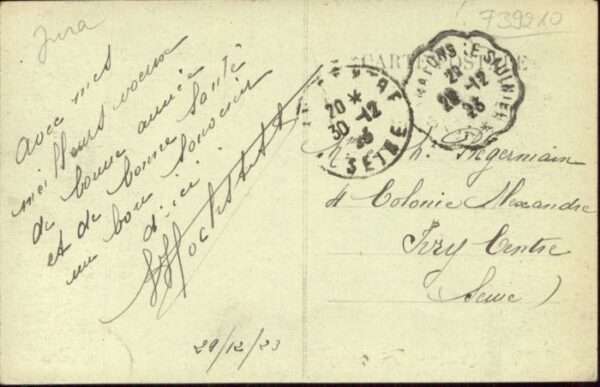 Jura
739910
CARTE POSTALE
Avec mes
meilleurs voeux
de bonne année
et de bonne santé
un bon souvenir
d'ici
29/12/23
20 *
30 -12
23
SEINE
LE SAULNIER
28 -12
23
M. h. Fregermain
4 Colonie Alexandre
Ivry Centre
Seine)